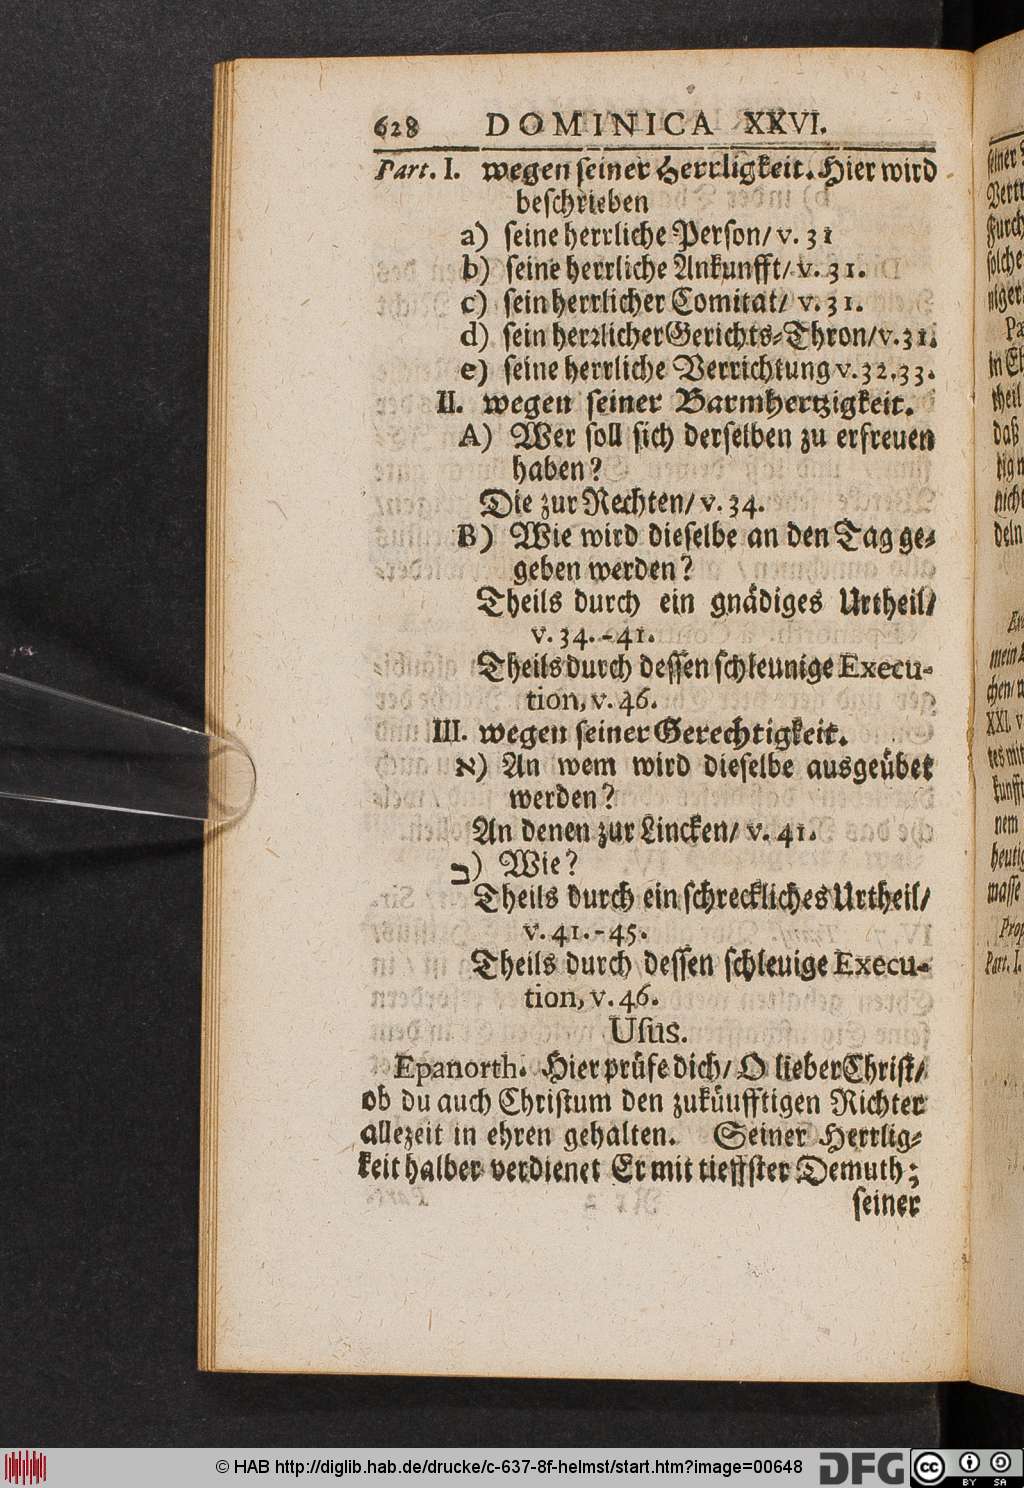 628 DOMINICA XXVI.
Part. I. wegen seiner Herrligkeit. Hier wird
beschrieben
a) seine herrliche Person/ v. 31
b) seine herrliche Ankunfft/ v. 31.
c) sein herrlicher Comitat/ v. 31.
d) sein herrlicher Gerichts-Thron/ v. 31.
e) seine herrliche Verrichtung v. 32. 33.
II. wegen seiner Barmhertzigkeit.
A) Wer soll sich derselben zu erfreuen
haben?
Die zur Rechten/ v. 34.
B) Wie wird dieselbe an den Tag ge-
geben werden?
Theils durch ein gnädiges Urtheil/
v. 34.-41.
Theils durch dessen schleunige Execu-
tion, v. 46.
III. wegen seiner Gerechtigkeit.
א) An wem wird dieselbe ausgeübet
werden?
An denen zur Lincken/ v. 41.
ב) Wie?
Theils durch ein schreckliches Urtheil/
v. 41.-45.
Theils durch dessen schleuige Execu-
tion, v. 46.
Usus.
Epanorth. Hier prüfe dich/ O lieber Christ/
ob du auch Christum den zuküufftigen Richter
allezeit in ehren gehalten. Seiner Herrlig-
keit halber verdienet Er mit tieffster Demuth;
seiner
© HAB http://diglib.hab.de/drucke/c-637-8f-helmst/start.htm?image=00648
DFG
cc BY SA